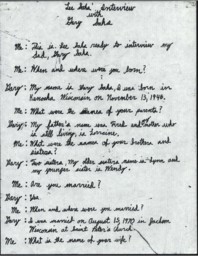 Lee Saha' Interview
with
Gary Saha
Me: This is Lee Saha ready to interview my
dad, Gary Saha.
Me: When and where were you born?
Gary: My name is Gary Saha, I was born in
Kenosha, Wisconsin on November 15, 1940.
Me: What were the names of your parents?
Gary: My father's name was Frank and mother who
is still living, is Lorraine.
Me: What were the names of your brothers and
sisters?
Gary: Two sisters, My older sisters name is Lynn and
my younger sister is Wendy.
Me: Are you married?
Gary: Yes
Me: When and where were you married?
Gary: I was married on August 15, 1970 in
Wisconsin at Saint Peter's Church.
Me: What is the name of your wife?